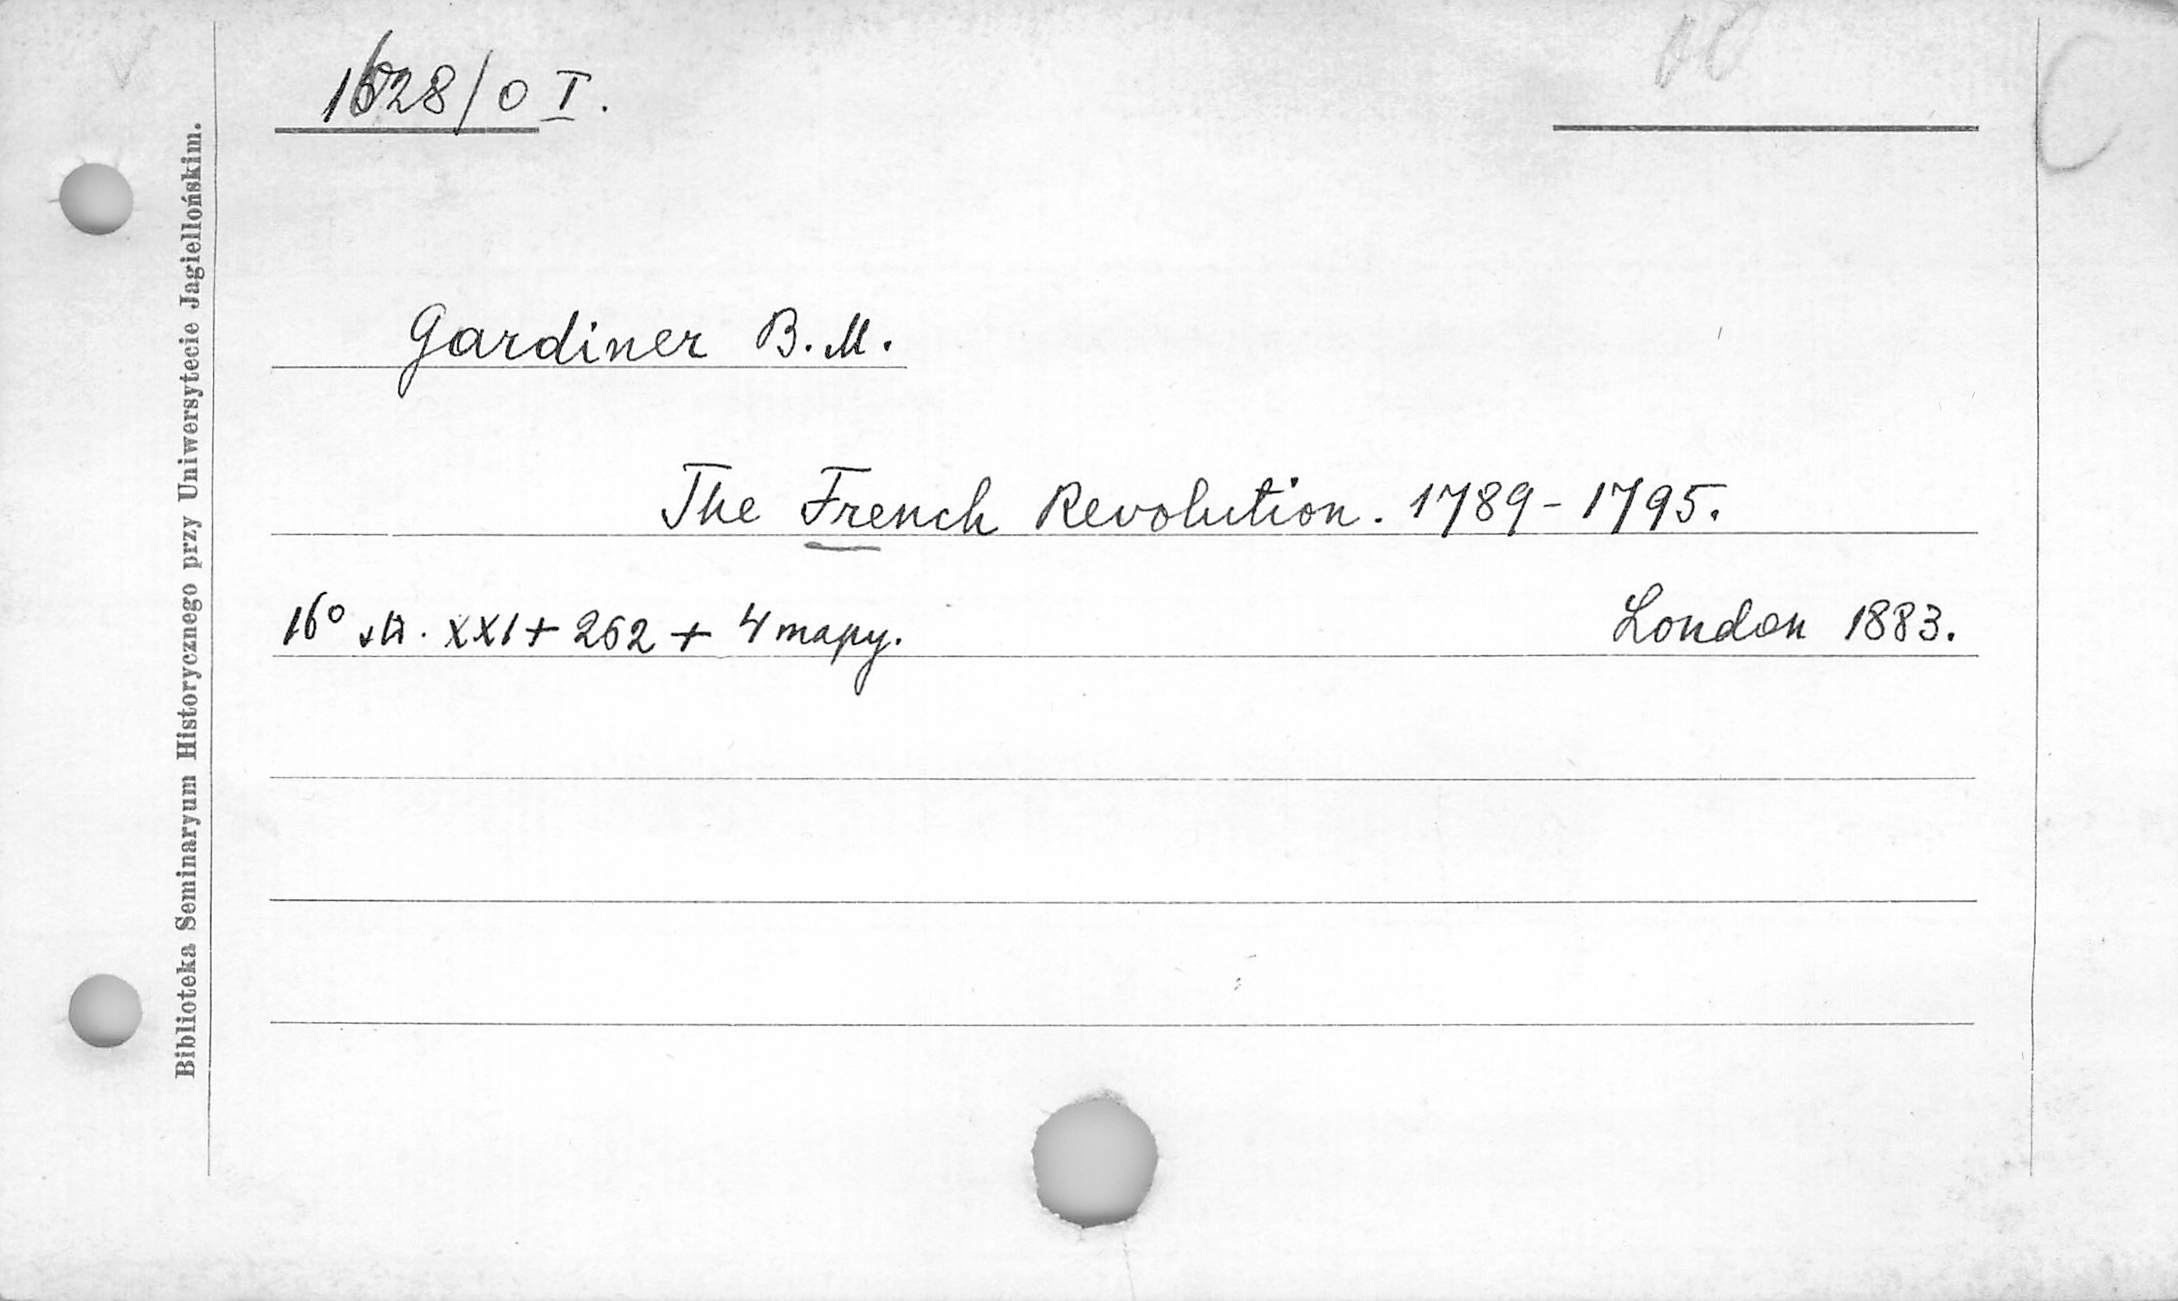 1628/0 I.
Gardiner B. M.
The French Revolution. 1789-1795.
16° str. XXI + 262 + 4 mapy.
London 1883.
Biblioteka Seminaryum Historycznego przy Uniwersytecie Jagiellońskim.